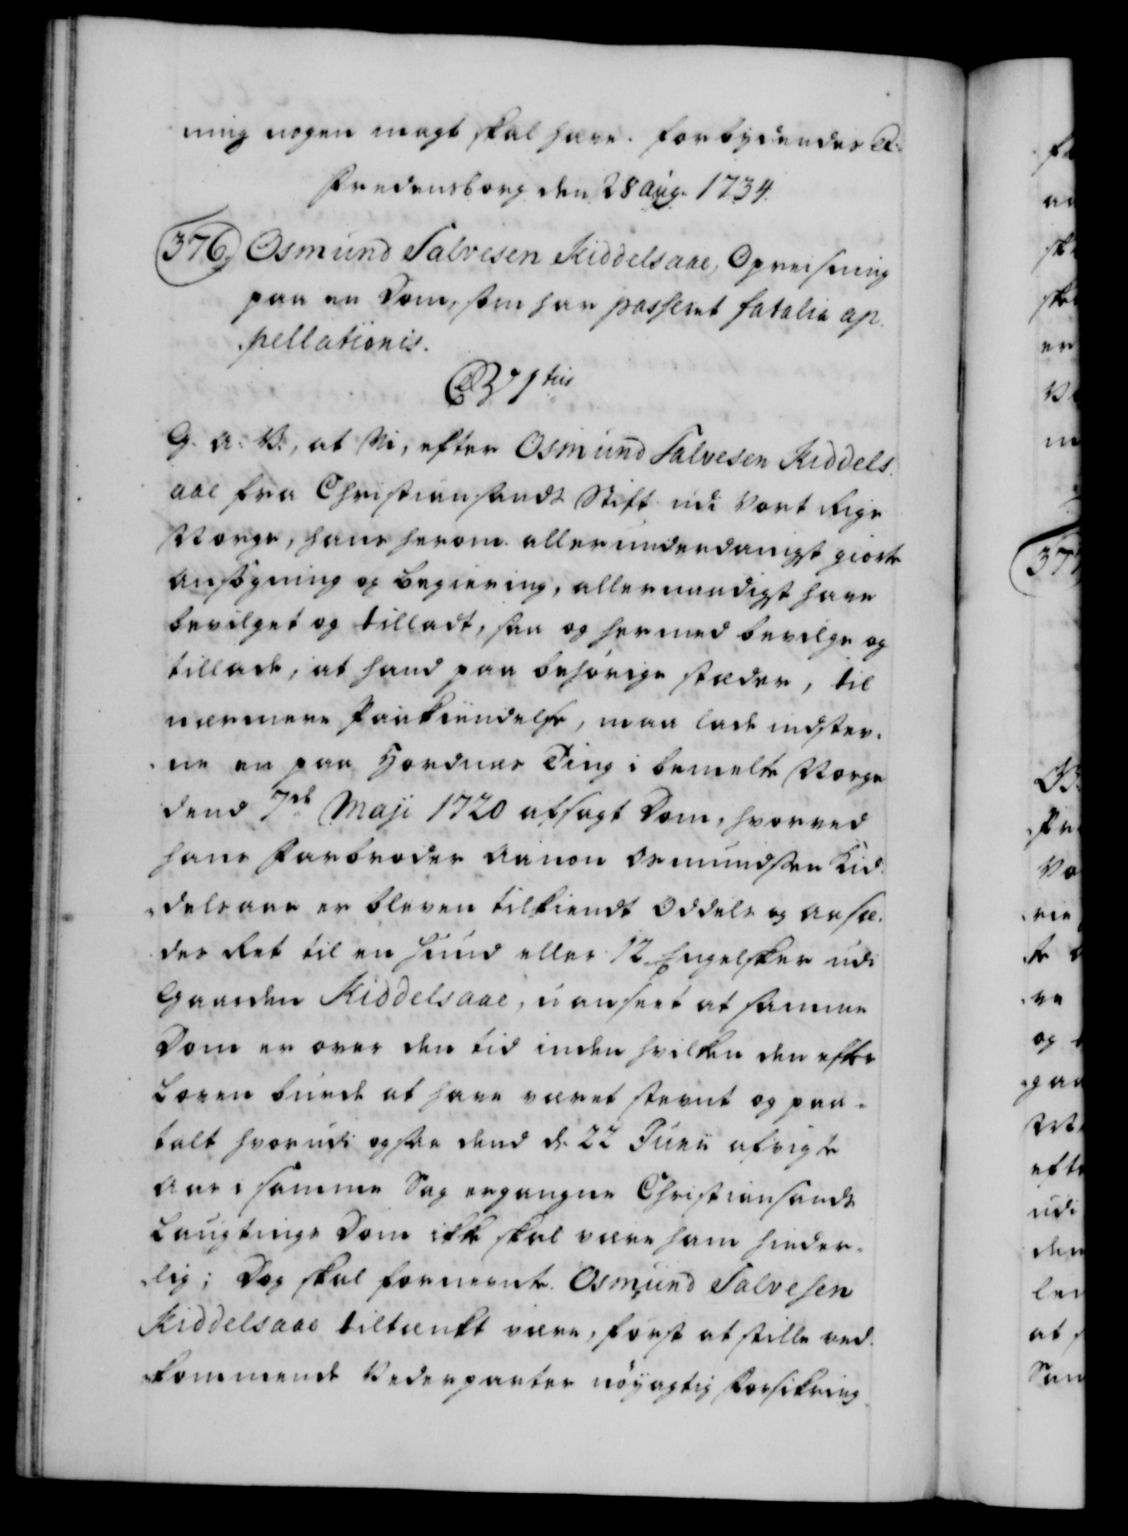 ning nogen magt skal have. forbydendes &.
Fredensborg den 28 aug. 1734.
376, Osmund Salvesen Kiddelsaae, Opreisning
paa en Dom, som har passeret fatalia ap-
pellationis.
C 37 1tus
G. A: V:, at Vi, efter Osmund Salvesen Kiddels-
aae fra Christiansands Stift udi Vort Rige
Norge, hans herom allerunderdanigst giorte
Ansøgning og begiering, allernaadigst have
bevilget og tilladt, saa og hermed bevilge og
tillade, at hand paa behørige stæder, til
nærmere Paakiendelse, maa lade indstev-
ne en paa Hordnes Ting i bemelte Norge
dend 7de Maji 1720 afsagt Dom, hvorved
hans Farbroder Aanon Osmundsen Kid-
delsaae er bleven tilkiendt Oddels og Aasæ-
des Ret til en Huud eller 12 Engelsker udi
Gaarden Kiddelsaae, uanseet at samme
Dom er over den tid inden hvilken den efter
Loven burde at have været stevnt og paa-
talt hvorudi ogsaa dend d. 22 Junii afvigte
Aar i samme Sag ergangne Christiansands
Laugtings Dom ikke skal være ham hinder-
lig; Dog skal fornevnte Osmund Salvesen
Kiddelsaae tiltænkt være, først at stille ved-
kommende Vederparter nöyagtig Forsikring